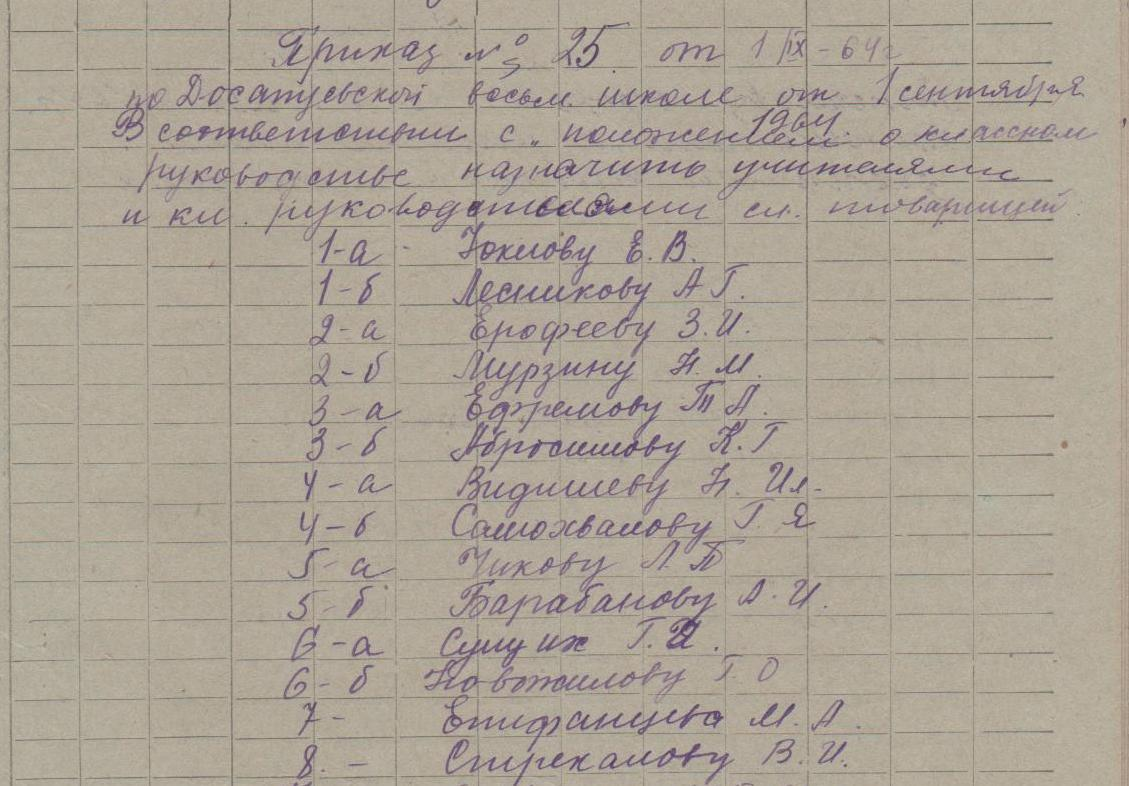 Приказ № 25. от 1/IX-64г
по Досатуевской восьм. школе от 1 сентября
1964.
В соответствии с „положением о классном
руководстве назначить учителями
и кл. руководителями сл. товарищей
1-а - Юкову Е.В.
1-б Лесникову А Г.
2-а Ерофееву З.И.
2-б Мурзину Н.М.
3-а Ефремову Т А.
3-б Абросимову К.Г
4-а Видишеву Н. Ил.
4-б Самохвалову Г. Я
5-а Чикову Л П
5-б Барабанову А.И.
6-а Сущих Г.И.
6-б Новожилову Г. О
7- Епифанцева М.А.
8. - Стрекалову В.И.